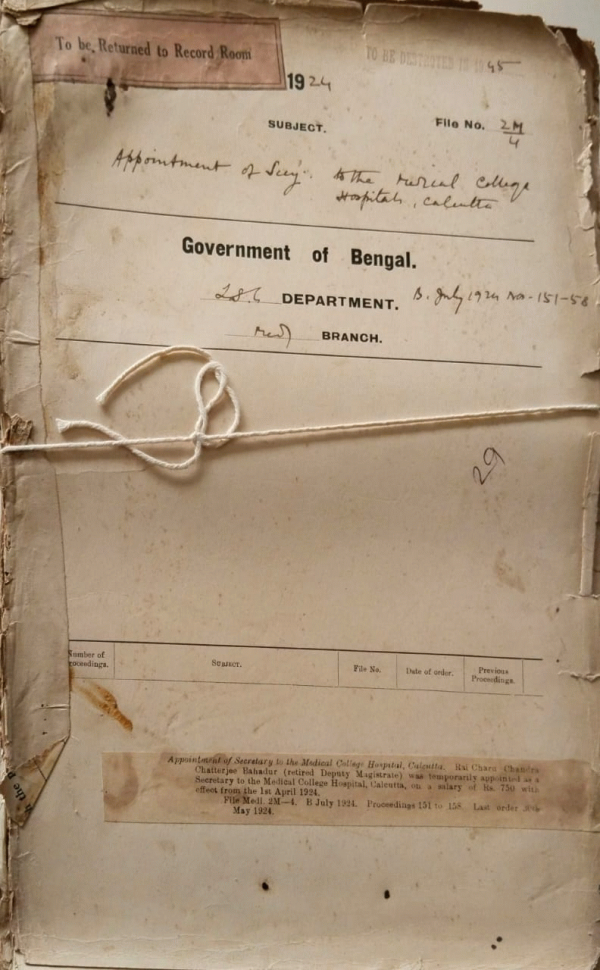 To be Returned to Record Room
TO BE DESTROYED IN 1945
1924
SUBJECT.
File No. 2M/4
Appointment of Secy. to the Medical College
Hospitals, Calcutta
Government of Bengal.
DEPARTMENT.
B. July 1924 Nos. 151-58
Medl BRANCH.
29
Number of Proceedings.
SUBJECT.
File No.
Date of order.
Previous Proceedings.
Appointment of Secretary to the Medical College Hospital, Calcutta. Rai Charu Chandra
Chatterjee Bahadur (retired Deputy Magistrate) was temporarily appointed as a
Secretary to the Medical College Hospital, Calcutta, on a salary of Rs. 750 with
effect from the 1st April 1924.
File Medl. 2M—4. B July 1924. Proceedings 151 to 158. Last order
May 1924.